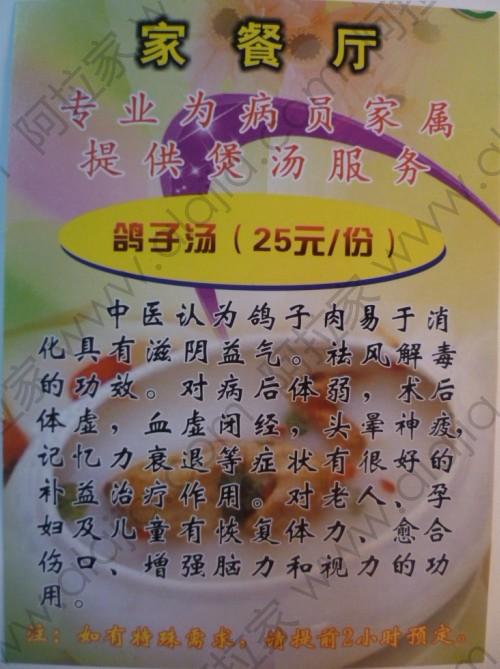 家餐厅
专业为病员家属
提供煲汤服务
鸽子汤（25元/份）
中医认为鸽子肉易于消
化具有滋阴益气。祛风解毒
的功效。对病后体弱，术后
体虚，血虚闭经，头晕神疲，
记忆力衰退等症状有很好的
补益治疗作用。对老人、孕
妇及儿童有恢复体力、愈合
伤口、增强脑力和视力的功
用。
注：如有特殊需求，请提前2小时预定。
阿拉家 www.alajia.com